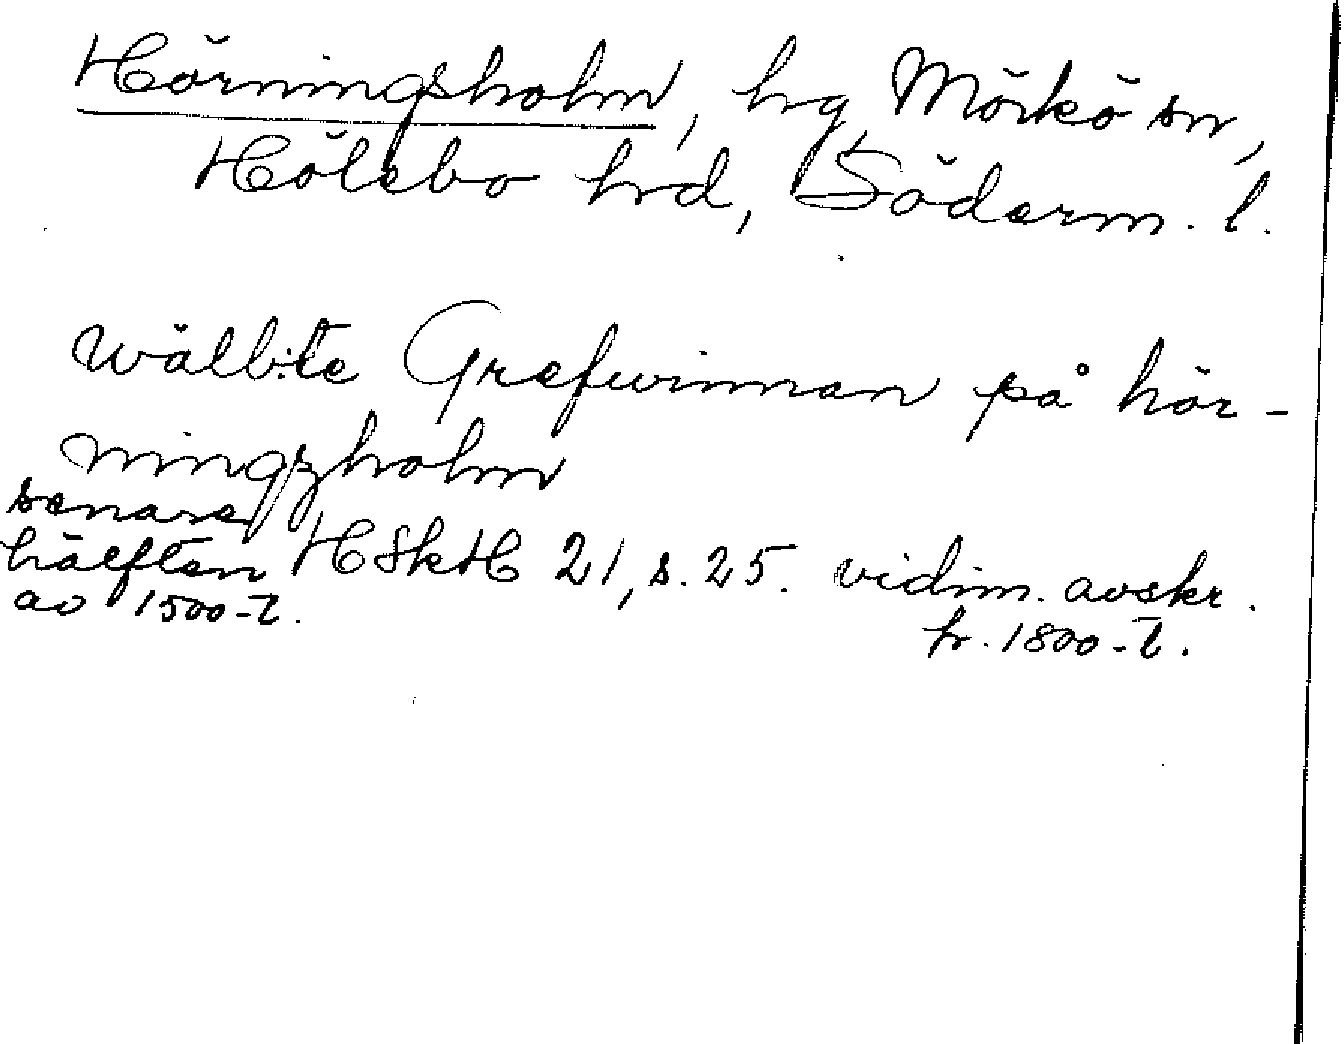 Hörningsholm, hg, Mörkö sn,
Hölebo hrd, Söderm. l.
Wälb:te Grefwinnan på hör-
ningzholm
senare
hälften HSkH 21, s. 25. vidim. avskr.
av 1500-t. fr. 1800-t.